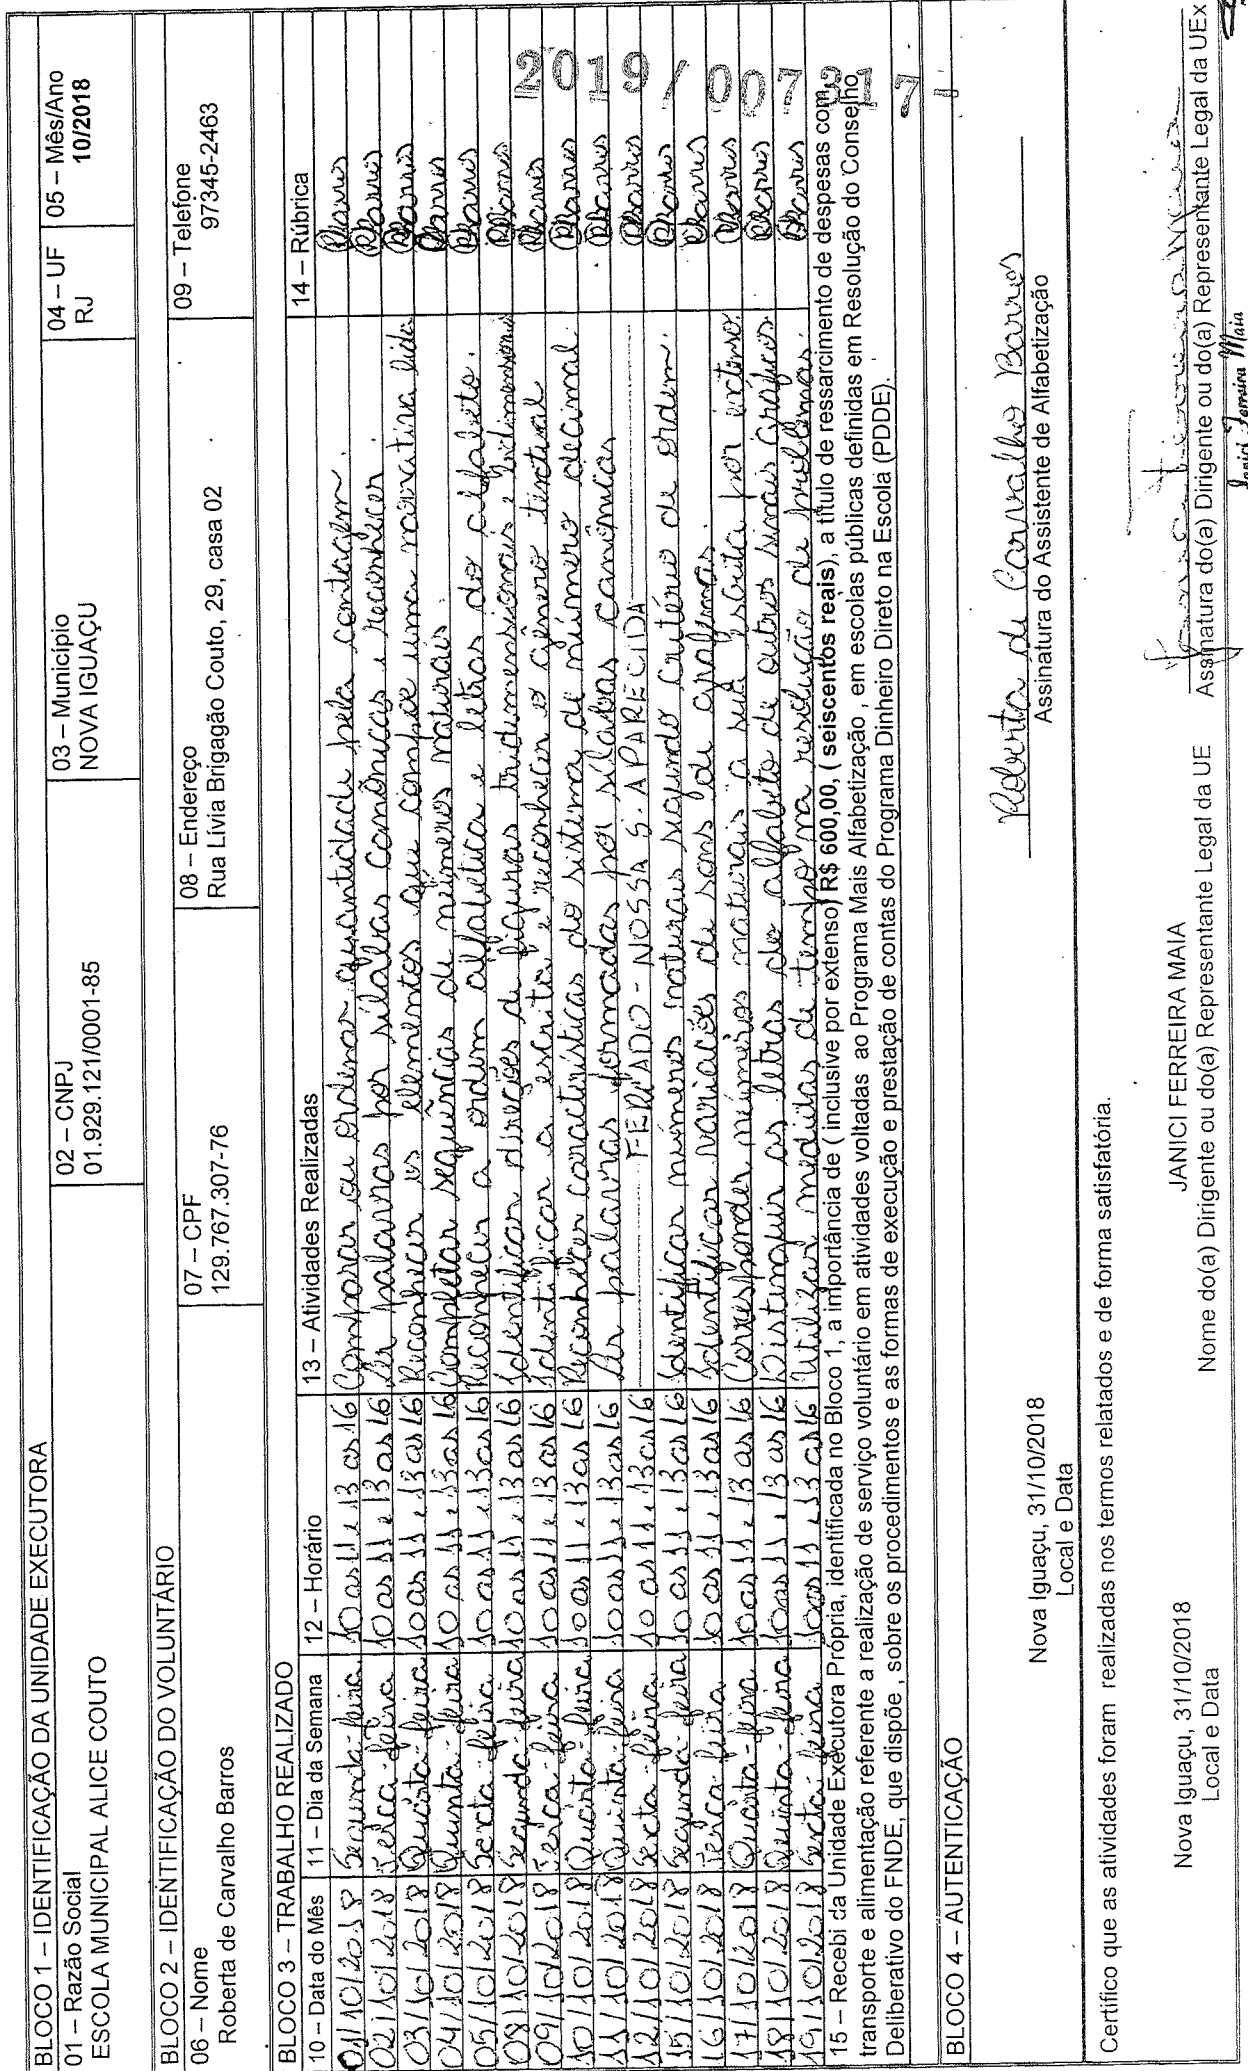 BLOCO 1 – IDENTIFICAÇÃO DA UNIDADE EXECUTORA
01 – Razão Social
ESCOLA MUNICIPAL ALICE COUTO
02 – CNPJ
01.929.121/0001-85
03 – Município
NOVA IGUAÇU
04 – UF
RJ
05 – Mês/Ano
10/2018
BLOCO 2 – IDENTIFICAÇÃO DO VOLUNTÁRIO
06 – Nome
Roberta de Carvalho Barros
07 – CPF
129.767.307-76
08 – Endereço
Rua Lívia Brigagão Couto, 29, casa 02
09 – Telefone
97345-2463
BLOCO 3 – TRABALHO REALIZADO
10 – Data do Mês 11 – Dia da Semana 12 – Horário 13 – Atividades Realizadas 14 – Rúbrica
01/10/2018 Segunda-feira 10 as 11 e 13 as 16 Comparar ou ordenar quantidade pela contagem. RBarros
02/10/2018 Terça-feira 10 as 11 e 13 as 16 Ler palavras por sílabas canônicas e reconhecer. RBarros
03/10/2018 Quarta-feira 10 as 11 e 13 as 16 Reconhecer os elementos que compõe uma narrativa lida RBarros
04/10/2018 Quinta-feira 10 as 11 e 13 as 16 Completar sequências de números naturais. RBarros
05/10/2018 Sexta-feira 10 as 11 e 13 as 16 Reconhecer a ordem alfabética e letras do alfabeto. RBarros
08/10/2018 Segunda-feira 10 as 11 e 13 as 16 Identificar direções de figuras tridimensionais e bidimensionais RBarros
09/10/2018 Terça-feira 10 as 11 e 13 as 16 Identificar a escrita e reconhecer o gênero textual RBarros
10/10/2018 Quarta-feira 10 as 11 e 13 as 16 Reconhecer características do sistema de número decimal. RBarros
11/10/2018 Quinta-feira 10 as 11 e 13 as 16 Ler palavras formadas por sílabas canônicas RBarros
12/10/2018 Sexta-feira 10 as 11 e 13 as 16 FERIADO - NOSSA S. APARECIDA RBarros
15/10/2018 Segunda-feira 10 as 11 e 13 as 16 Identificar números naturais segundo critério de ordem. RBarros
16/10/2018 Terça-feira 10 as 11 e 13 as 16 Identificar variações de sons de grafemas. RBarros
17/10/2018 Quarta-feira 10 as 11 e 13 as 16 Corresponder números naturais a sua escrita por extenso. RBarros
18/10/2018 Quinta-feira 10 as 11 e 13 as 16 Distinguir as letras do alfabeto de outros sinais gráficos. RBarros
19/10/2018 Sexta-feira 10 as 11 e 13 as 16 Utilizar medidas de tempo na resolução de problemas. RBarros
2019/007317
15 – Recebi da Unidade Executora Própria, identificada no Bloco 1, a importância de ( inclusive por extenso) R$ 600,00, ( seiscentos reais), a título de ressarcimento de despesas com
transporte e alimentação referente a realização de serviço voluntário em atividades voltadas ao Programa Mais Alfabetização , em escolas públicas definidas em Resolução do Conselho
Deliberativo do FNDE, que dispõe , sobre os procedimentos e as formas de execução e prestação de contas do Programa Dinheiro Direto na Escola (PDDE).
BLOCO 4 – AUTENTICAÇÃO
Nova Iguaçu, 31/10/2018
Local e Data
Roberta de Carvalho Barros
Assinatura do Assistente de Alfabetização
Certifico que as atividades foram realizadas nos termos relatados e de forma satisfatória.
Nova Iguaçu, 31/10/2018
Local e Data
JANICI FERREIRA MAIA
Nome do(a) Dirigente ou do(a) Representante Legal da UE
Janici Ferreira Maia
Assinatura do(a) Dirigente ou do(a) Representante Legal da UEx
Janici Ferreira Maia